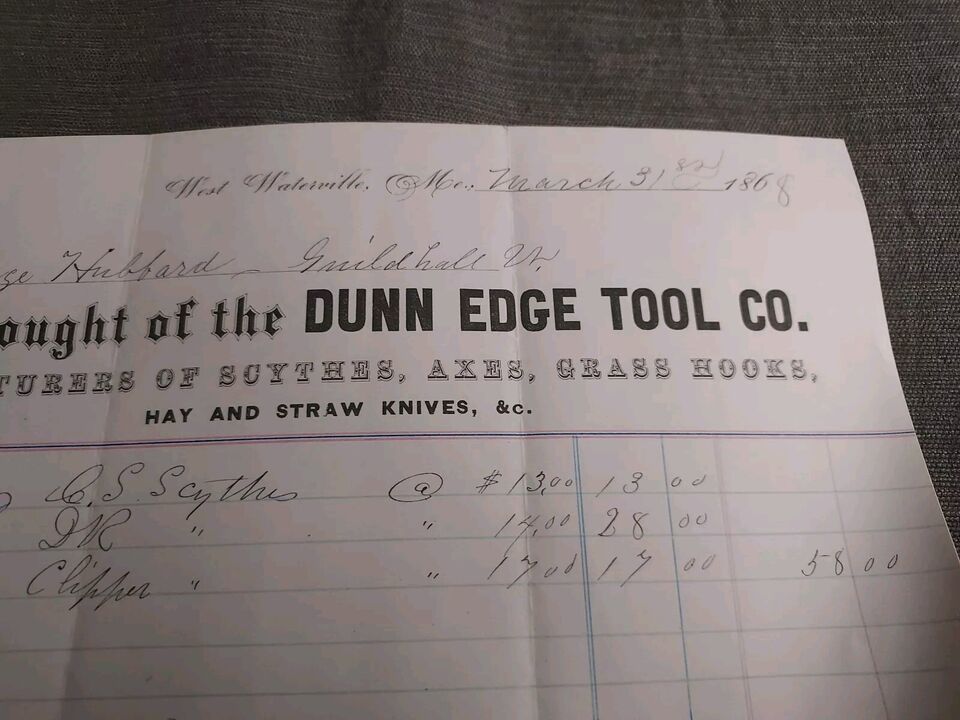 West Waterville, Me., March 31 1868
ge Hubbard – Guildhall Vt.
ought of the DUNN EDGE TOOL CO.
TURERS OF SCYTHES, AXES, GRASS HOOKS,
HAY AND STRAW KNIVES, &c.
C. S. Scythes @ $13,00 13 00
DR " " 14,00 28 00
Clipper " " 17 00 17 00 58 00